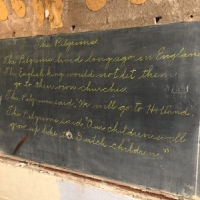 The Pilgrims
The Pilgrims lived long ago in England
The English king would not let them
go to their own churches
The Pilgrims said, "We will go to Holland
The Pilgrims said "Our children will
grow up like Dutch children."